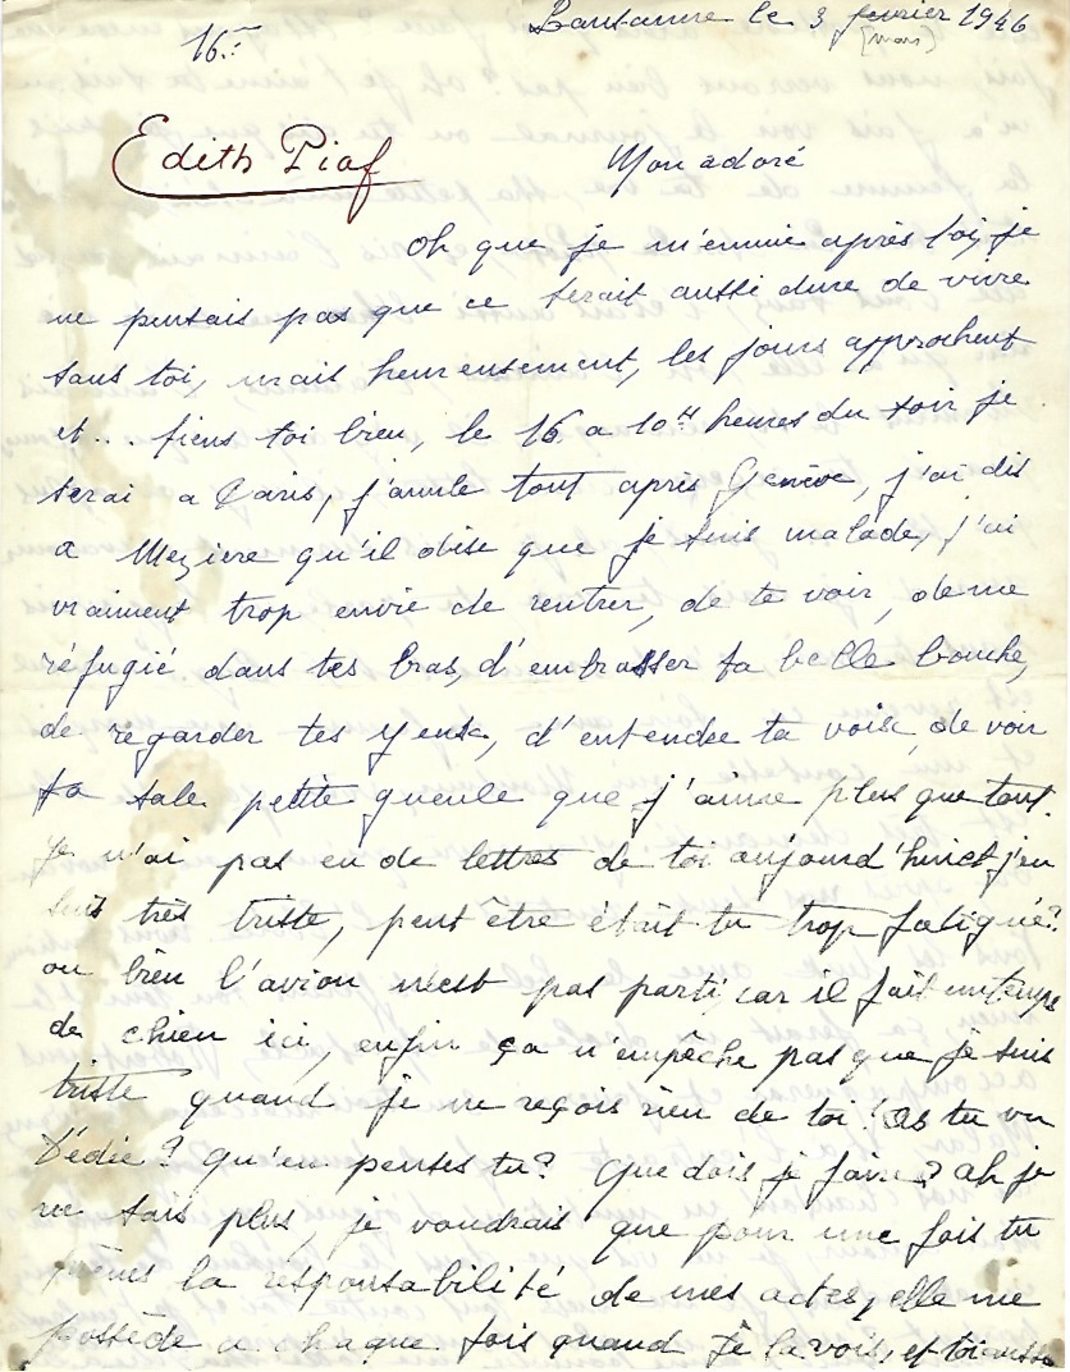 Lausanne le 3 fevrier 1946
(mars)
16.
Edith Piaf
Mon adoré
Oh que je m'ennuie après toi, je
ne pensais pas que ce serait aussi dure de vivre
sans toi, mais heureusement, les jours approchent
et... tiens toi bien, le 16 a 10 H heures du soir je
serai a Paris, j'annule tout après Genève, j'ai dis
a Meziere qu'il dise que je suis malade, j'ai
vraiment trop envie de rentrer, de te voir, de me
réfugié dans tes bras, d'embrasser ta belle bouche,
de regarder tes yeux, d'entendre ta voix, de voir
ta sale petite gueule que j'aime plus que tout.
Je n'ai pas eu de lettres de toi aujourd'hui et j'en
suis très triste, peut être était tu trop fatigué?
ou bien l'avion n'est pas parti, car il fait un temps
de chien ici, enfin ça n'empêche pas que je suis
triste quand je ne reçois rien de toi! as tu vu
Dédée? qu'en penses tu? que dois je faire? ah je
ne sais plus, je voudrais que pour une fois tu
prènes la responsabilité de mes actes, elle me
possède a chaque fois quand je la vois, et toi aussi